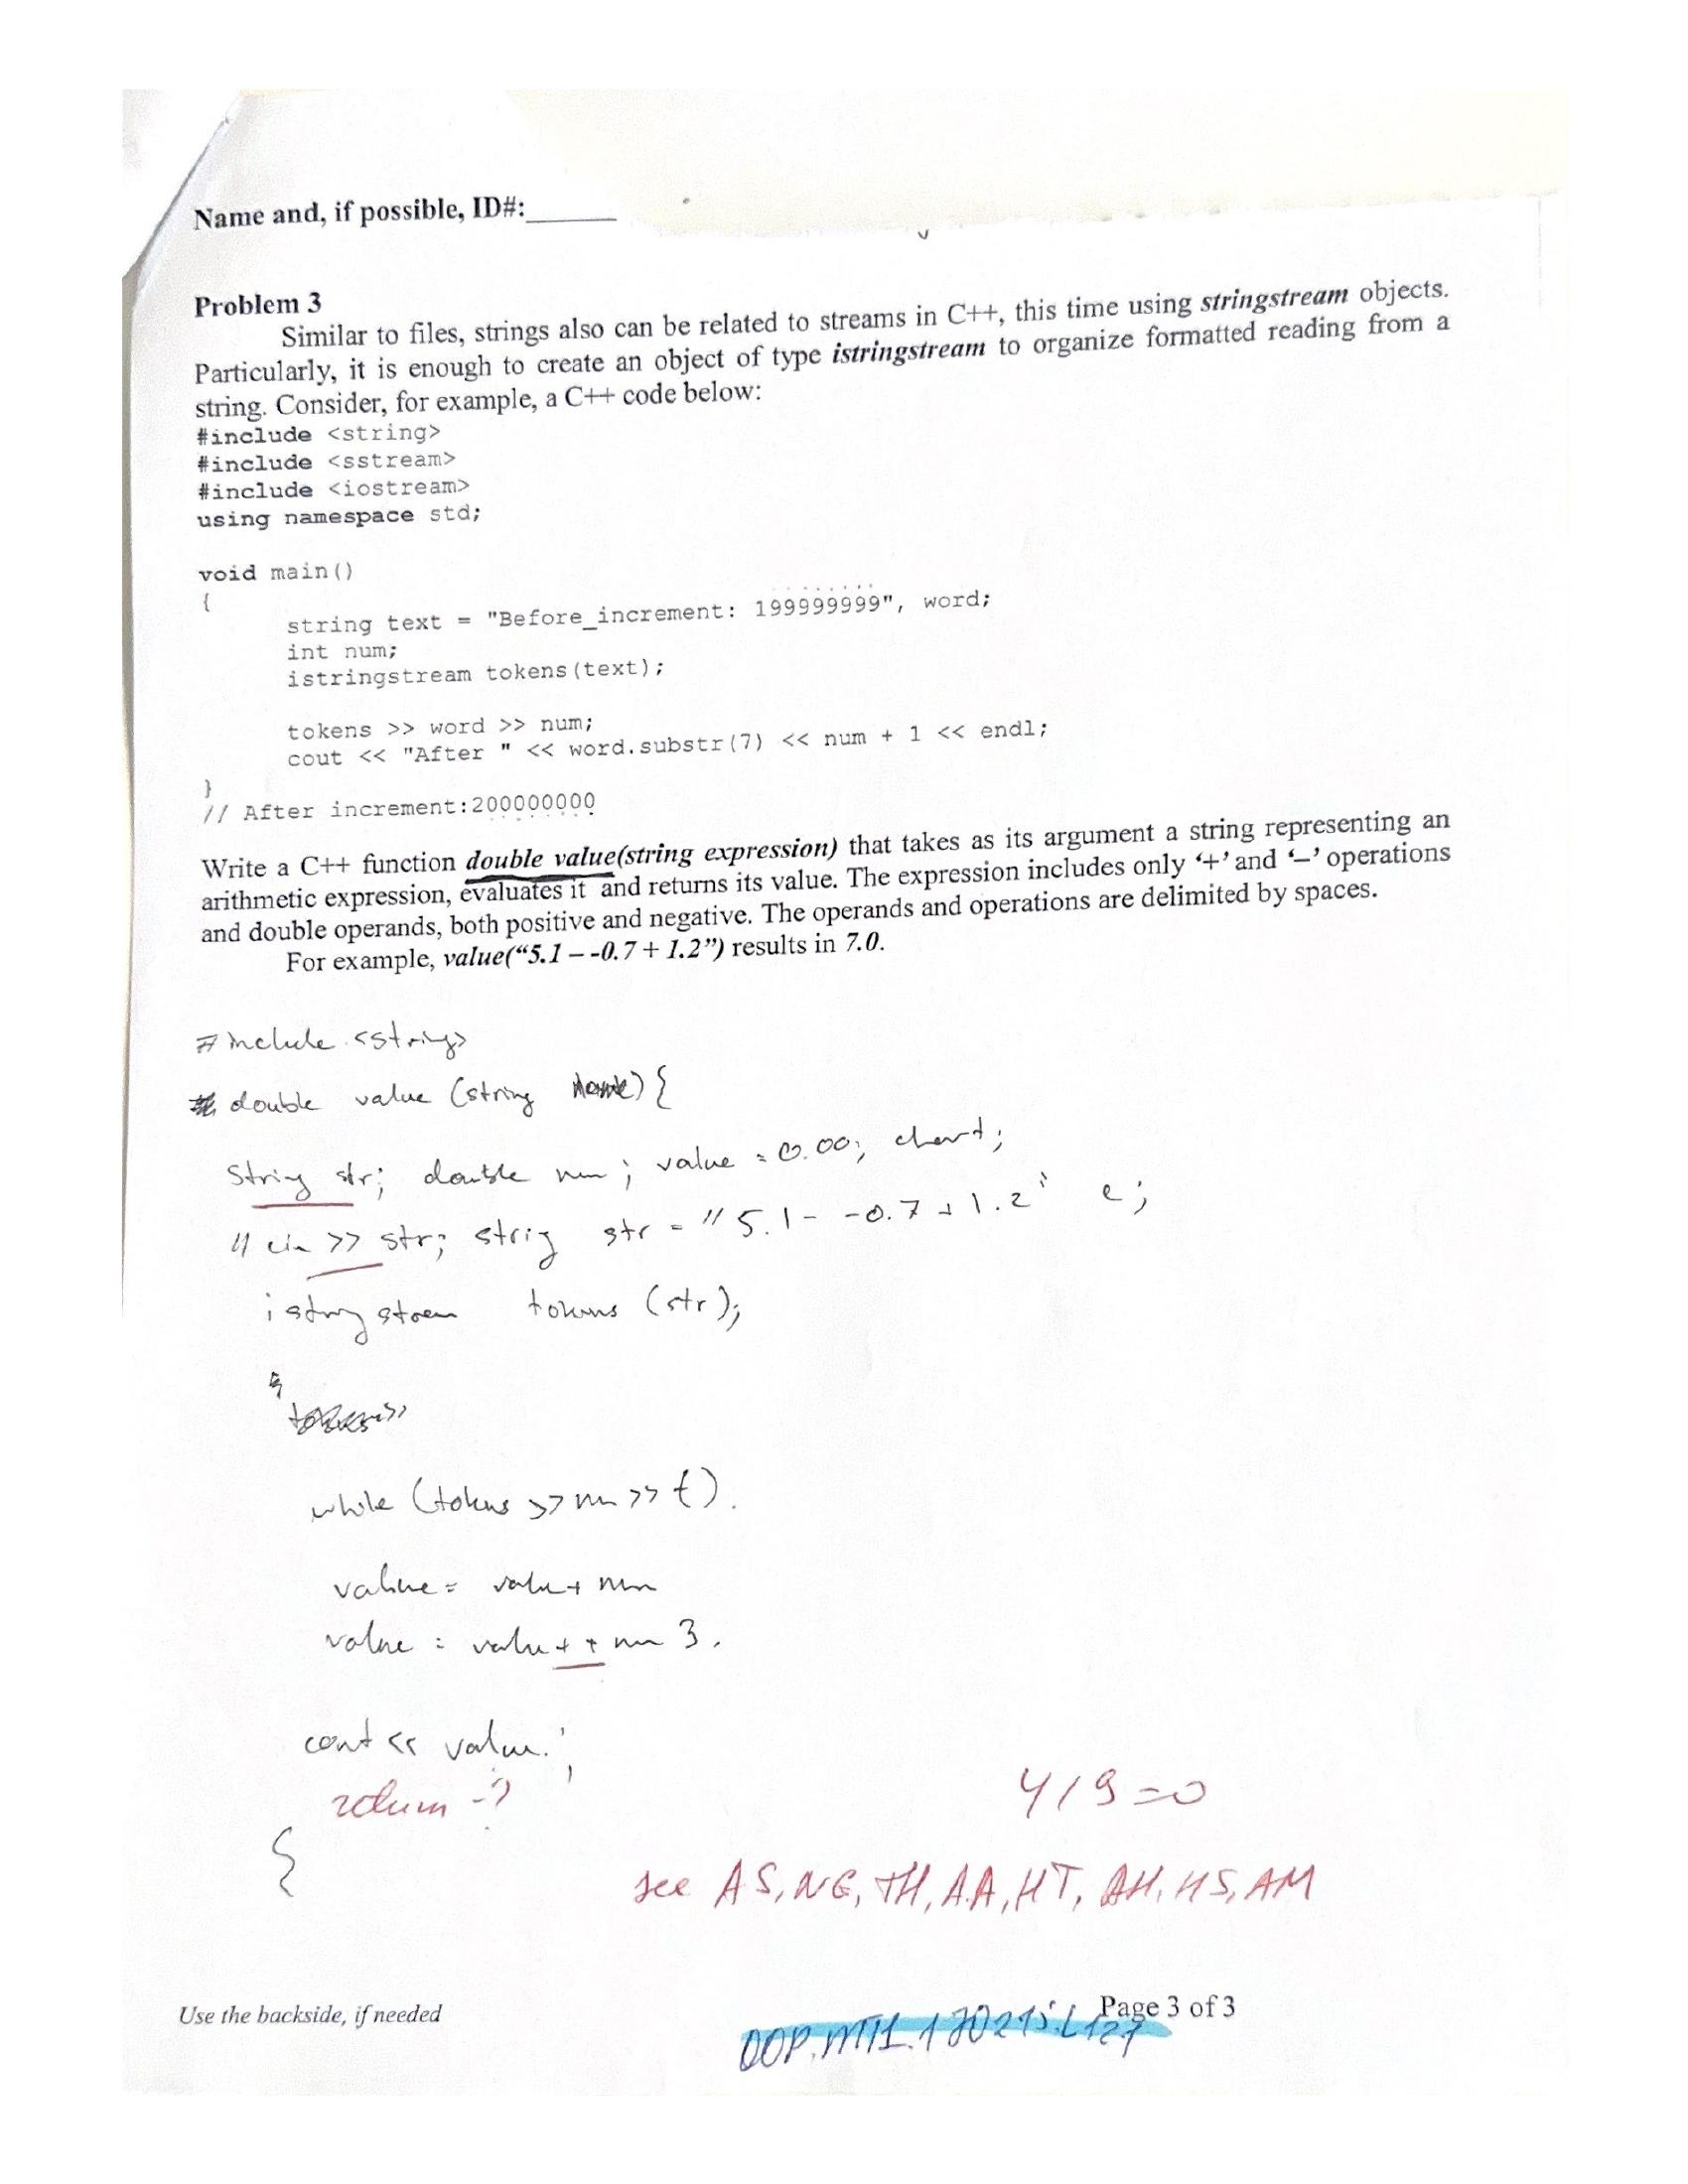 Name and, if possible, ID#:______
Problem 3
Similar to files, strings also can be related to streams in C++, this time using stringstream objects.
Particularly, it is enough to create an object of type istringstream to organize formatted reading from a
string. Consider, for example, a C++ code below:
#include <string>
#include <sstream>
#include <iostream>
using namespace std;
void main()
{
string text = "Before_increment: 199999999", word;
int num;
istringstream tokens(text);
tokens >> word >> num;
cout << "After " << word.substr(7) << num + 1 << endl;
}
// After increment:200000000
Write a C++ function double value(string expression) that takes as its argument a string representing an
arithmetic expression, evaluates it and returns its value. The expression includes only ‘+’ and ‘–’ operations
and double operands, both positive and negative. The operands and operations are delimited by spaces.
For example, value(“5.1 – -0.7 + 1.2”) results in 7.0.
#include <string>
double value (string ) {
String str; double num; value = 0.00; char t;
// cin >> str; string str = "5.1 - -0.7 + 1.2" ;
istringstream tokens (str);
while (tokens >> num >> t)
value = value + num
value = value + + num
cout << value;
return -?
{
4/9 =0
see AS, NG, TH, AA, HT, AH, HS, AM
Use the backside, if needed
Page 3 of 3
OOP.MT1.170215.L127